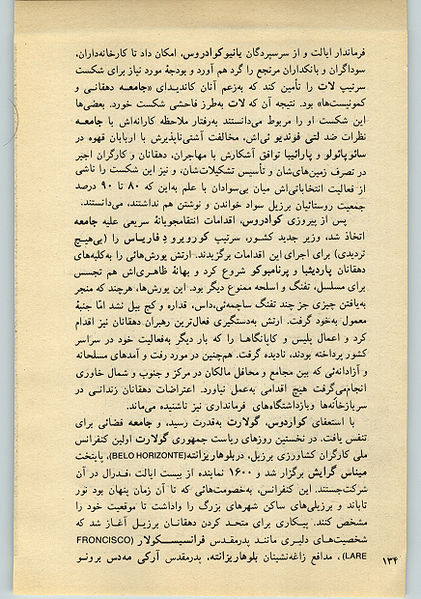 فرماندار ایالت و از سرسپردگان یانیوکوادروس، امکان داد تا کارخانه‌داران،
سوداگران و بانکداران مرتجع را گرد هم آورد و بودجهٔ مورد نیاز برای شکست
سرتیپ لات را تأمین کند که به‌زعم آنان کاندیدای «جامعه دهقانی و
کمونیست‌ها» بود. نتیجه آن که لات به‌طرز فاحشی شکست خورد. بعضی‌ها
این شکست او را مربوط می‌دانستند به‌رفتار ملاحظه کارانه‌اش با جامعه
نظرات ضد لتی فوندیو ئی‌اش، مخالفت آشتی‌ناپذیرش با اربابان قهوه در
سائوپائولو و پارائیبا توافق آشکارش با مهاجران، دهقانان و کارگران اجیر
در تصرف زمین‌های‌شان و تأسیس تشکیلات‌شان، و نیز این شکست را ناشی
از فعالیت انتخاباتی‌اش میان بی‌سوادان با علم به‌این که ۸۰ تا ۹۰ درصد
جمعیت روستائیان برزیل سواد خواندن و نوشتن هم نداشتند، می‌دانستند.
پس از پیروزی کوادروس، اقدامات انتقامجویانهٔ سریعی علیه جامعه
اتخاذ شد، وزیر جدید کشور، سرتیپ کوردیرو دِ فاریاس را (بی‌هیچ
تردیدی) برای اجرای این اقدامات برگزیدند. ارتش یورش‌هائی را به‌کلبه‌های
دهقانان پارئیشبا و پرنامبوکو شروع کرد و بهانهٔ ظاهری‌اش هم تجسس
برای مسلسل، تفنگ و اسلحه ممنوع دیگر بود. این یورش‌ها، هرچند که منجر
به‌یافتن چیزی جز چند تفنگ ساچمه‌ئی،داس، قداره و کج بیل نشد امّا جنبهٔ
معمول به‌خود گرفت. ارتش به‌دستگیری فعال‌ترین رهبران دهقانان نیز اقدام
کرد و اعمال پلیس و کاپانگاها را که بار دیگر به‌فعالیت خود در سراسر
کشور پرداخته بودند، نادیده گرفت. هم‌چنین در مورد رفت و آمدهای مسلحانه
و آزادانه‌ئی که بین مجامع و محافل مالکان در مرکز و جنوب و شمال خاوری
انجام‌می‌گرفت هیچ اقدامی به‌عمل نیاورد. اعتراضات دهقانان زندانی در
سربازخانه‌ها وبازداشتگاه‌های فرمانداری نیز ناشنیده می‌ماند.
با استعفای کوادروس، گولارت به‌قدرت رسید، و جامعه فضائی برای
تنفس یافت. در نخستین روزهای ریاست جمهوری گولارت اولین کنفرانس
ملی کارگران کشاورزی برزیل، دربلوهاریزانته(BELO HORIZONTE)، پایتخت
میناس گرایش برگزار شد و ۱۶۰۰ نماینده از بیست ایالت، فدرال در آن
شرکت‌جستند. این کنفرانس، به‌خصومت‌هائی که تا آن زمان پنهان بود نور
تاباند و برزیلی‌های ساکن شهرهای بزرگ را واداشت تا موقعیت خود را
مشخص کنند. پیکاری برای متحد کردن دهقانان برزیل آغاز شد که
شخصیت‌های دلیری مانند پدرمقدس فرانسیسکولار (FRONCISCO
LARE)، مدافع زاغه‌نشینان بلوهاریزانته، پدرمقدس آرکی مه‌دس برونو
۱۳۴